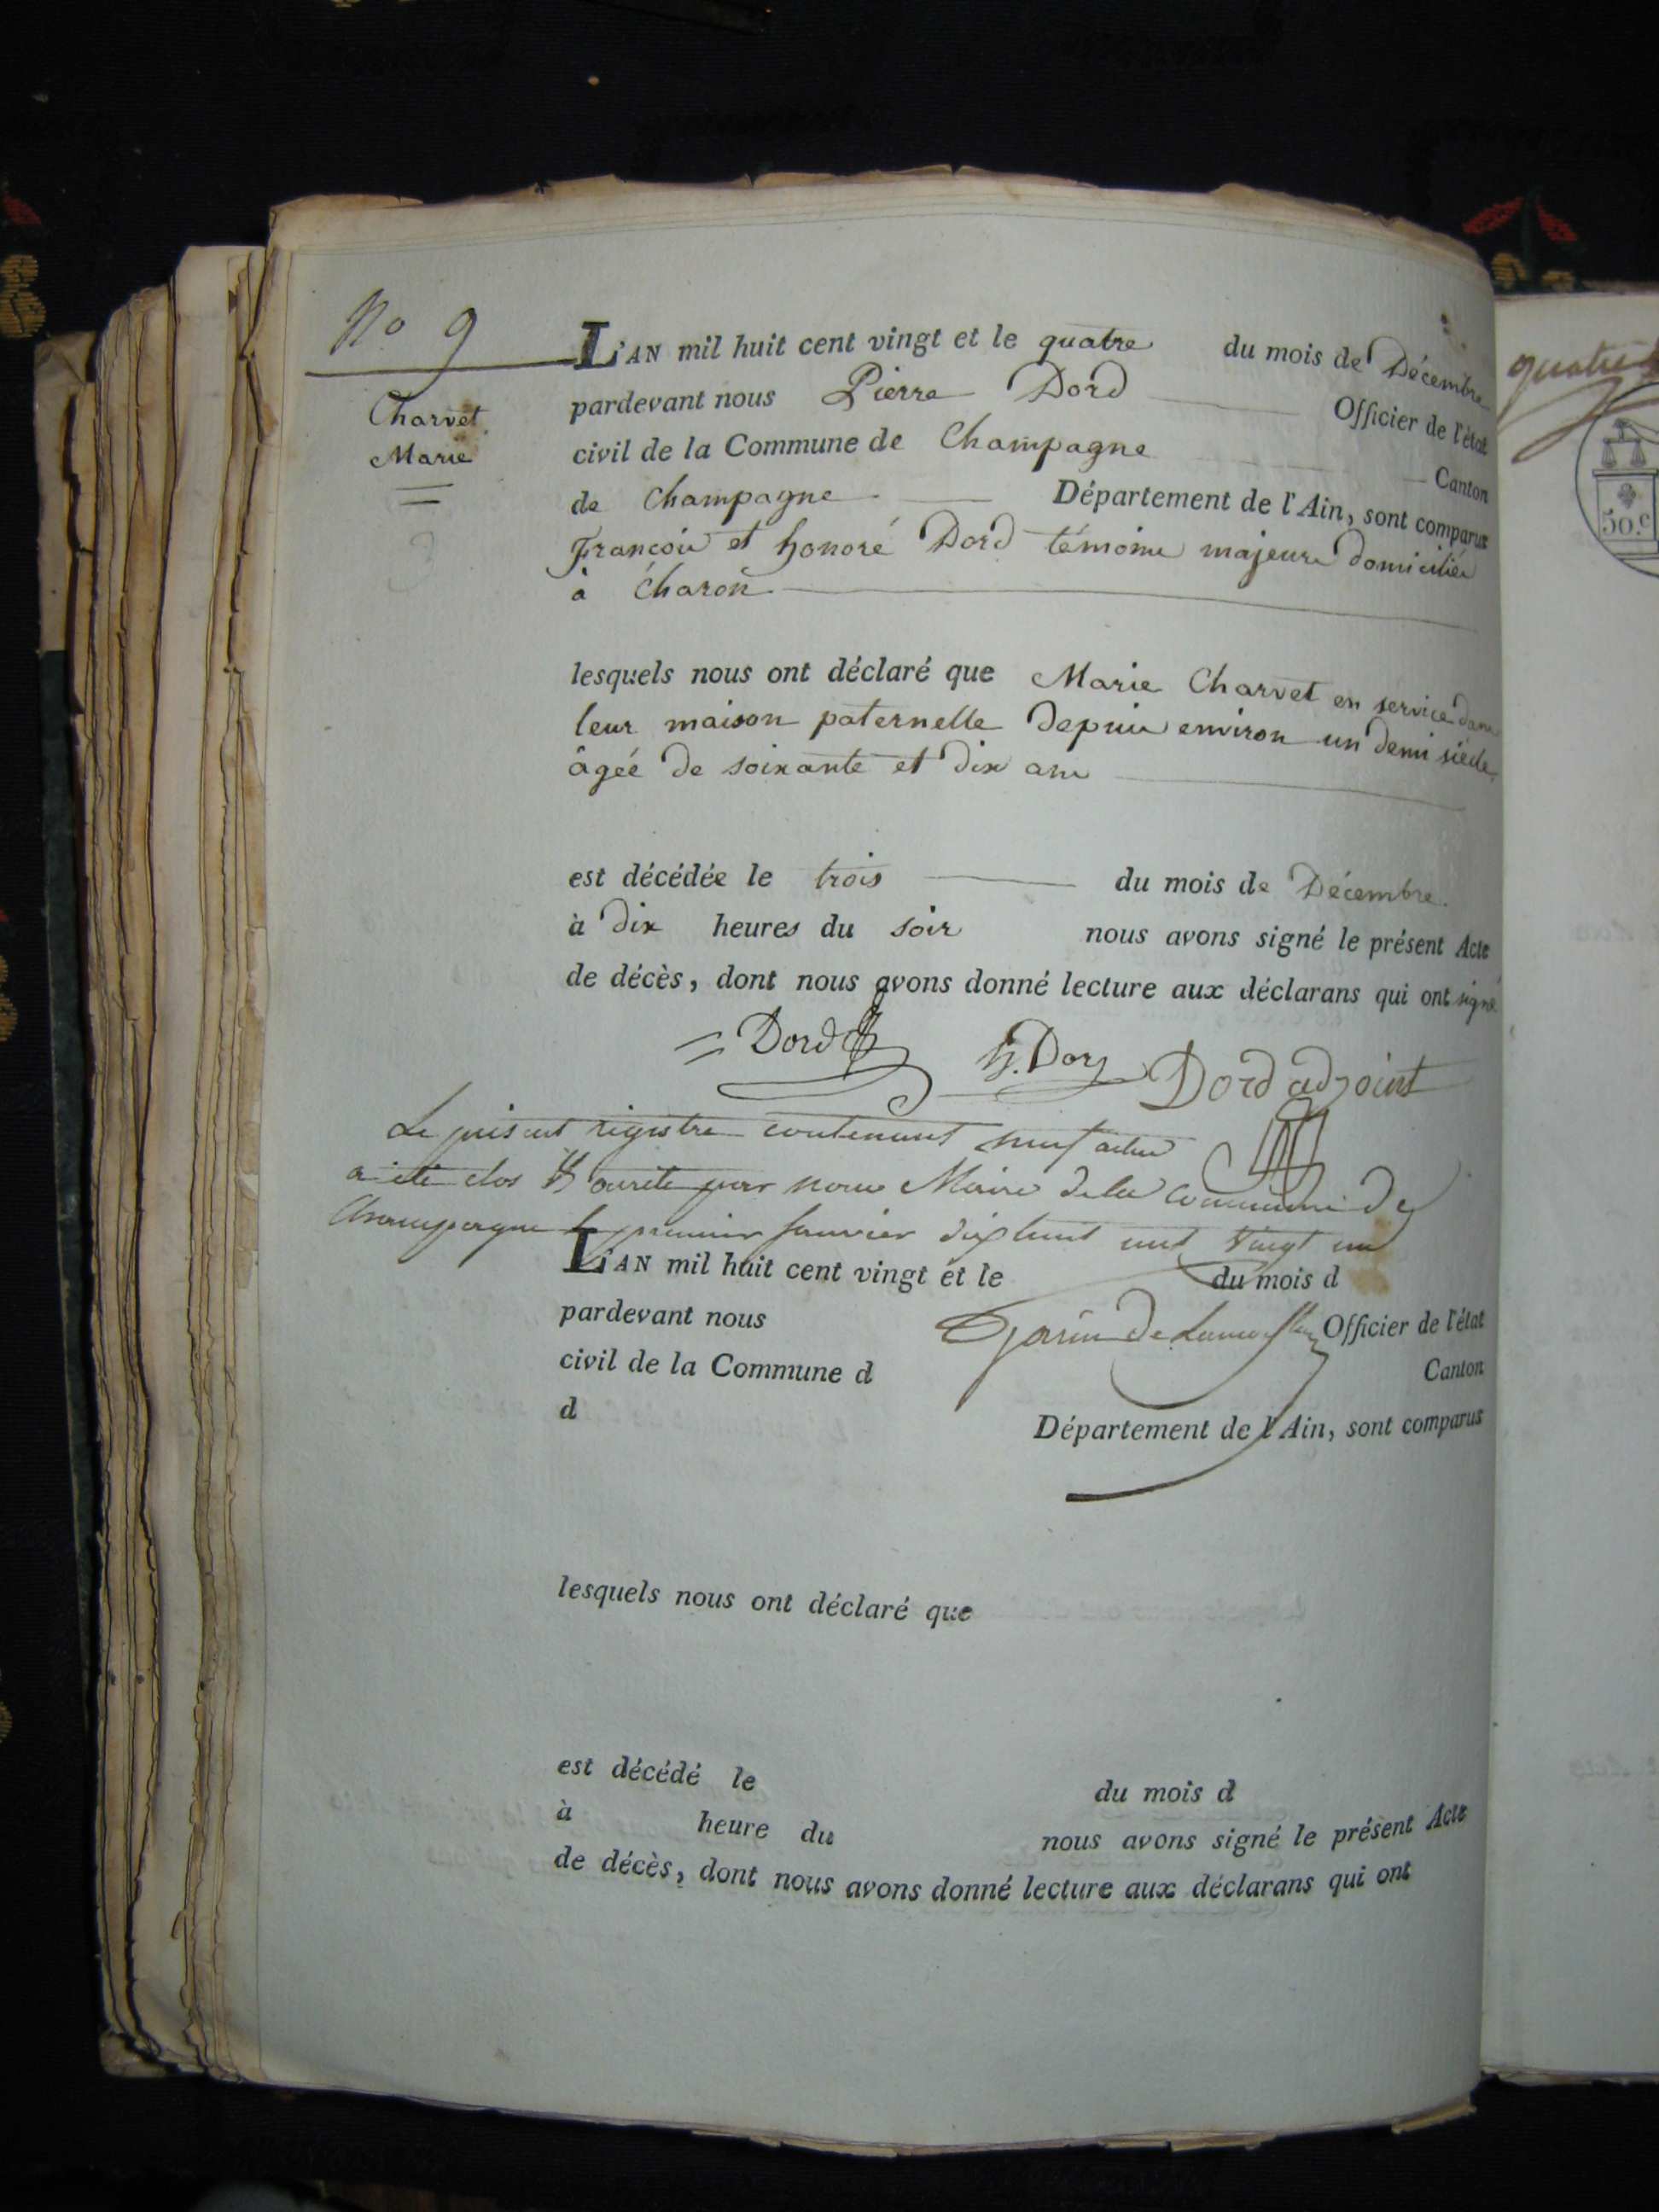 No 9
Charvet
Marie
L'AN mil huit cent vingt et le quatre du mois de Décembre
pardevant nous Pierre Dord Officier de l'état
civil de la Commune de Champagne Canton
de Champagne Département de l'Ain, sont comparus
François et honoré Dord témoins majeurs domiciliés
à Charon
lesquels nous ont déclaré que Marie Charvet en service dans
leur maison paternelle depuis environ un demi siècle,
âgée de soixante et dix ans
est décédée le trois du mois de Décembre.
à dix heures du soir nous avons signé le présent Acte
de décès, dont nous avons donné lecture aux déclarans qui ont signé
Dord H. Dord Dord adjoint
Le présent registre contenant neuf actes
a été clos et arrêté par nous Maire de la commune de
Champagne le premier janvier dix huit cent vingt un
L'AN mil huit cent vingt et le du mois d
pardevant nous Officier de l'état
civil de la Commune d Canton
d Département de l'Ain, sont comparus
lesquels nous ont déclaré que
est décédé le du mois d
à heure du nous avons signé le présent Acte
de décès, dont nous avons donné lecture aux déclarans qui ont
50.c